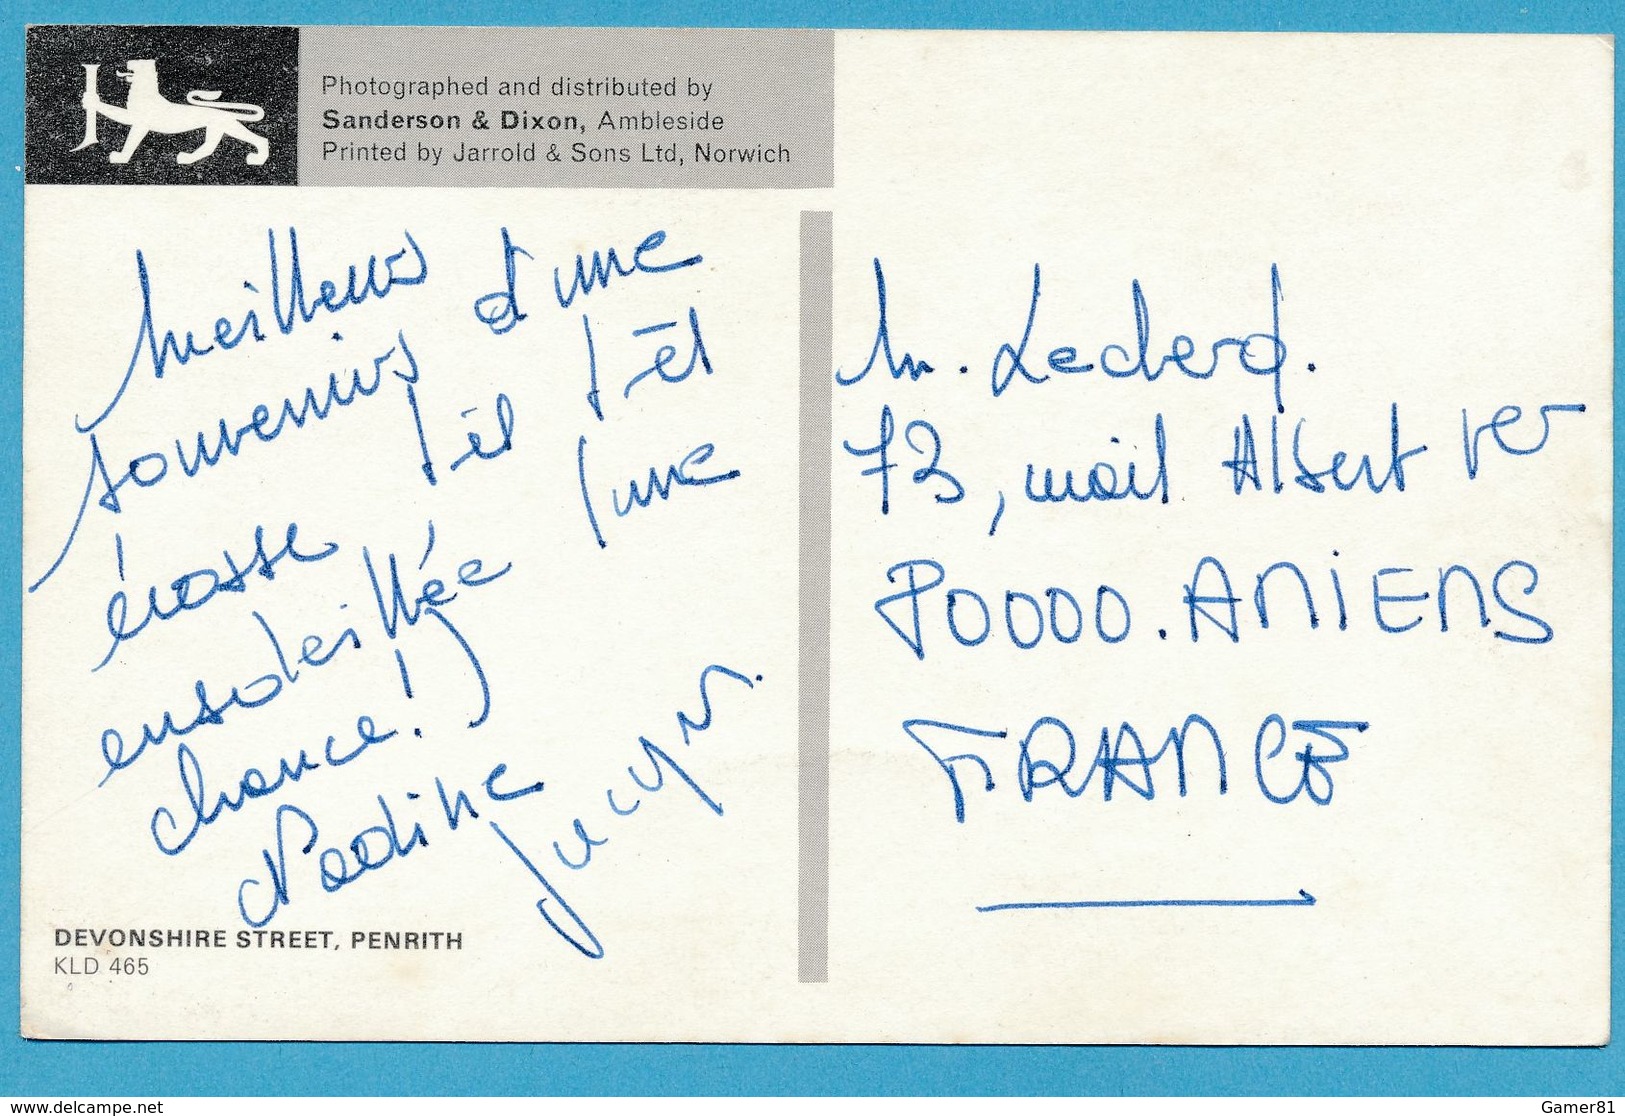 Photographed and distributed by
Sanderson & Dixon, Ambleside
Printed by Jarrold & Sons Ltd, Norwich
Meilleurs
souvenirs d'une
écosse
ensoleillée (une
chance!)
Nadine
DEVONSHIRE STREET, PENRITH
KLD 465
M. Leclercq.
73, mail Albert 1er
80000. AMIENS
FRANCE
www.delcampe.net
Gamer81